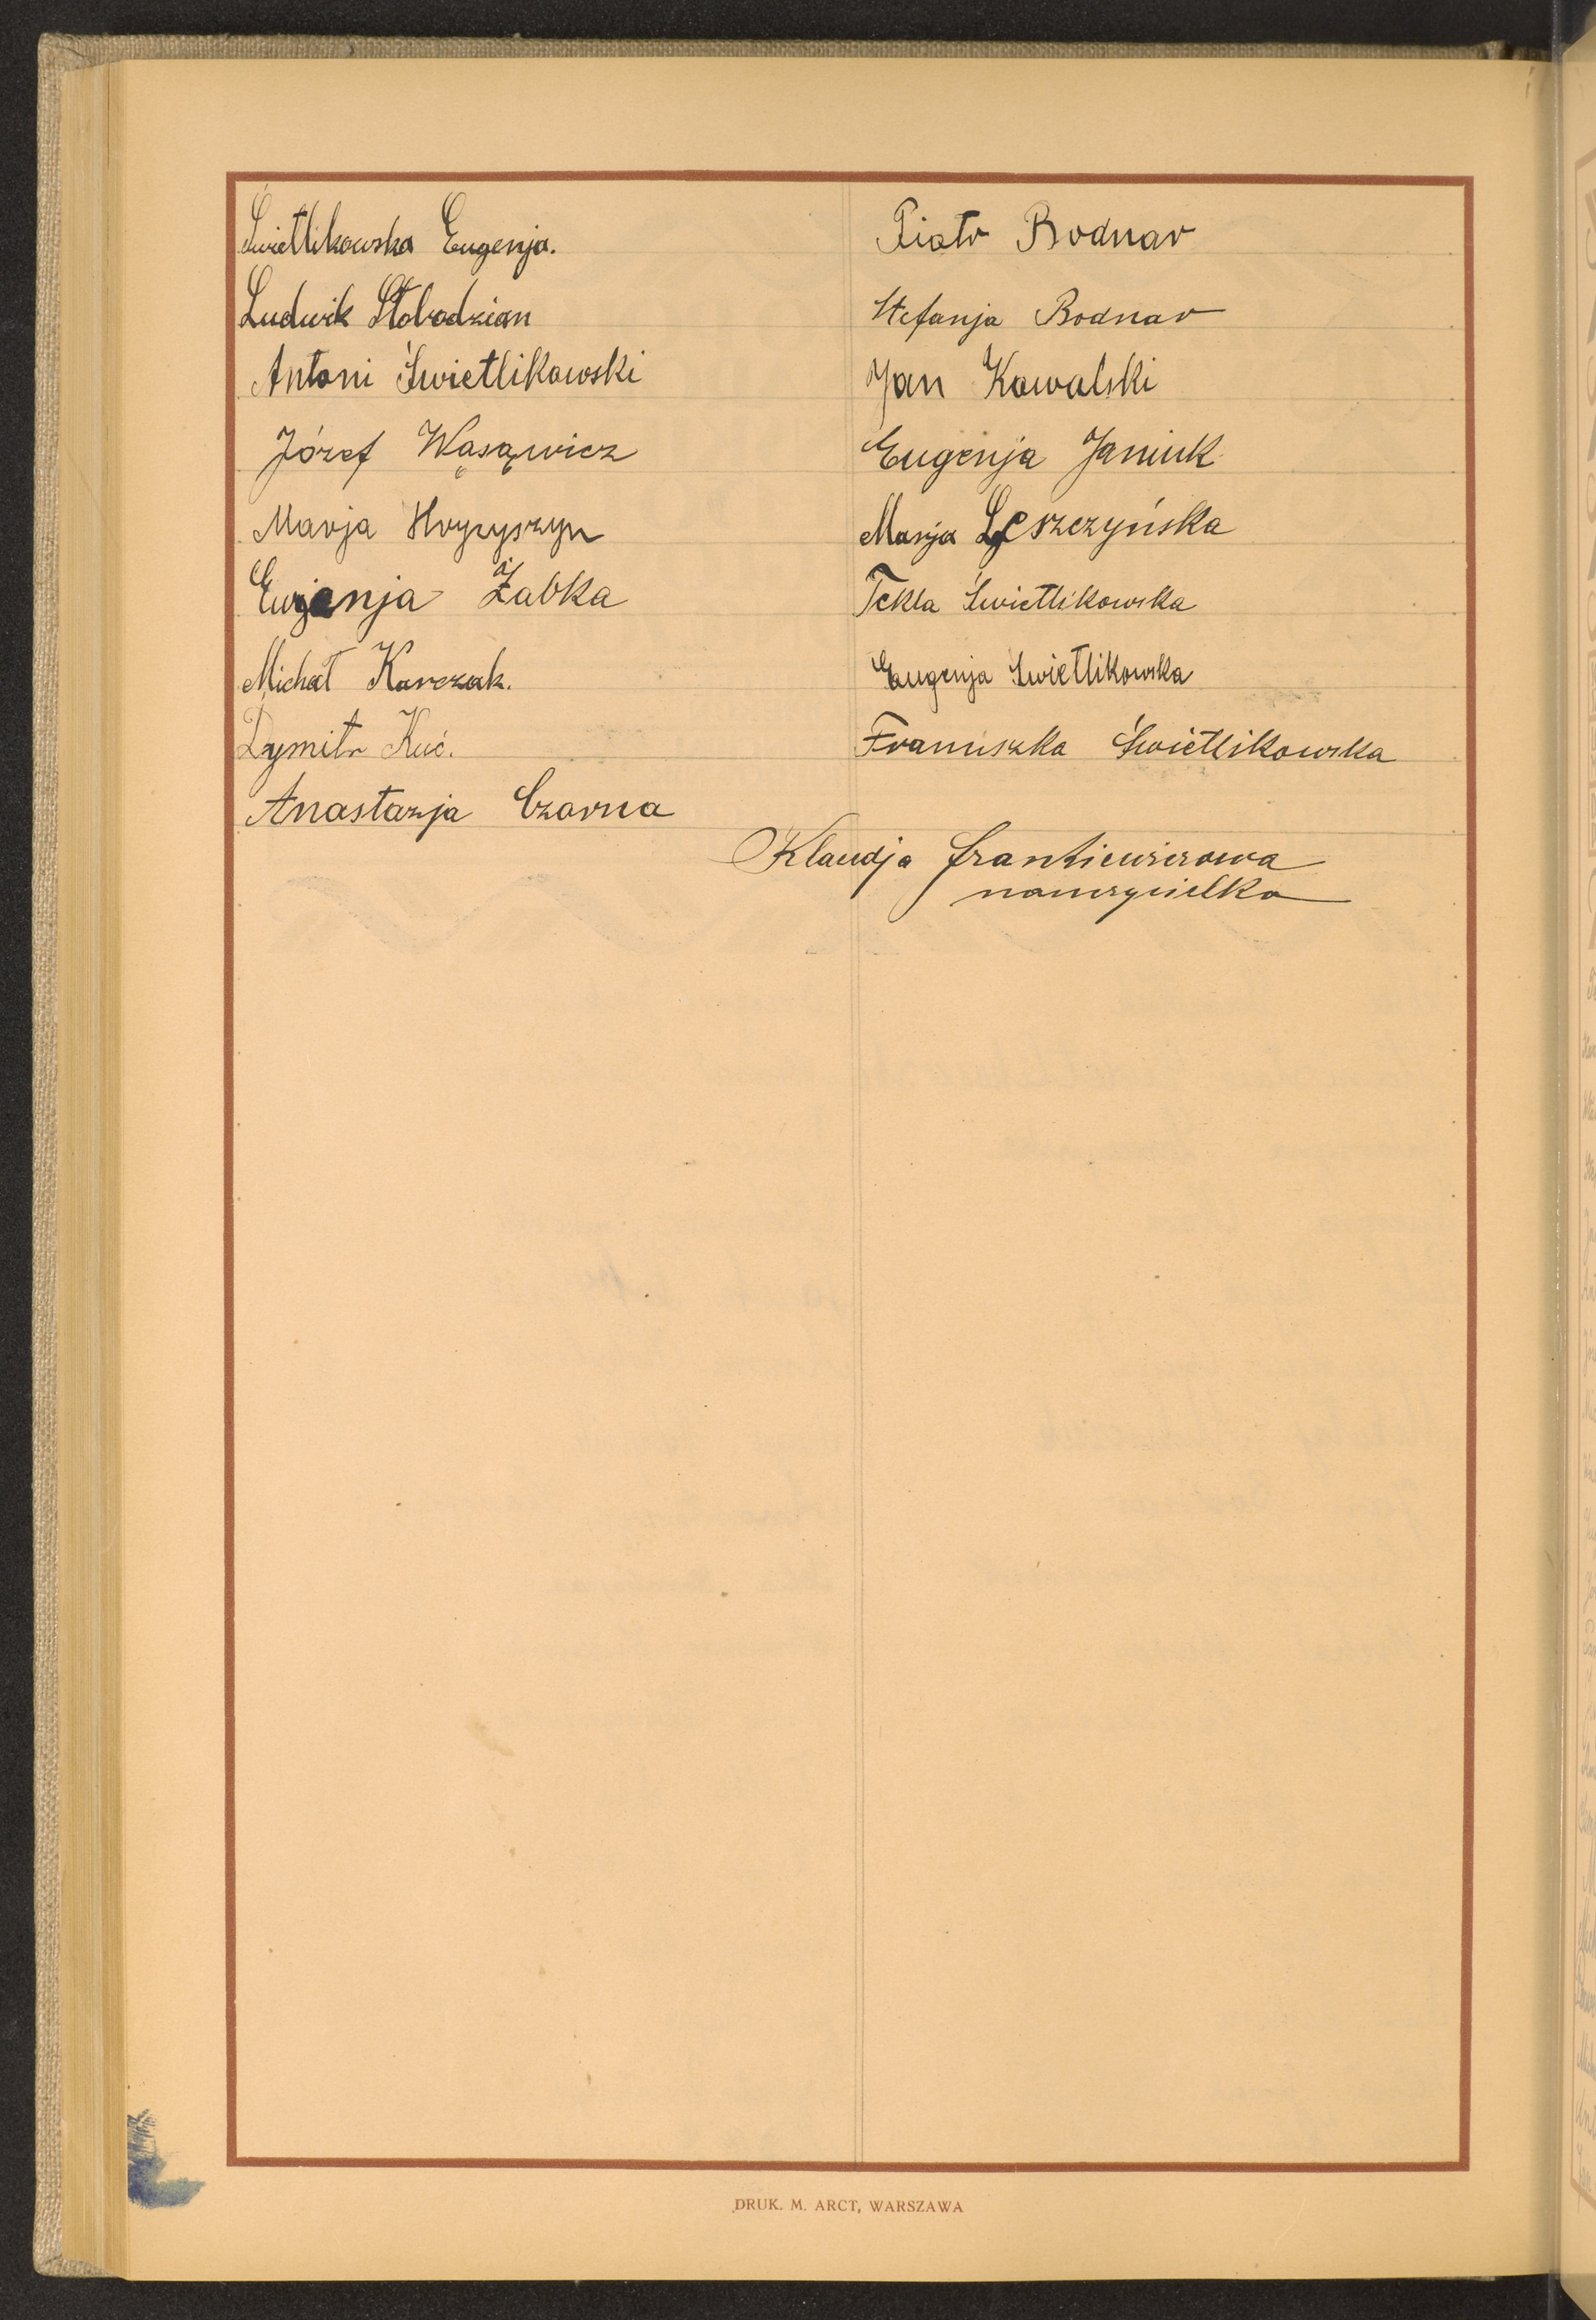 Świetlikowska Eugenja.
Ludwik Słobodzian
Antoni Świetlikowski
Józef Wąsąwicz
Marja Hryzyszyn
Eugenja Żabka
Michał Karczak.
Dymitr Kuć.
Anastazja Czarna
Piotr Bodnar
Stefanja Bodnar
Jan Kowalski
Eugenja Janiuk
Marja Leszczyńska
Tekla Świetlikowska
Eugenja Swietlikowska
Franuszka Świetlikowska
Klaudja Frankiewiczowa
nauczycielka
DRUK. M. ARCT, WARSZAWA